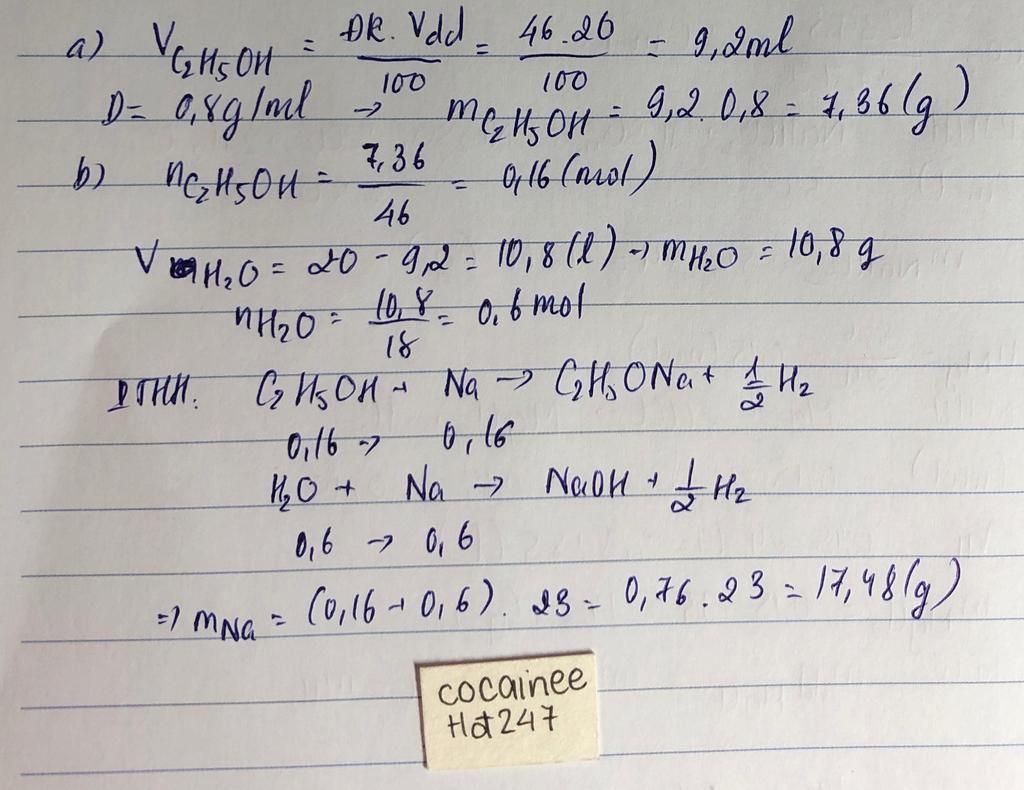 a) V C₂H₅OH = ĐR. Vdd / 100 = 46.20 / 100 = 9,2ml
D= 0,8g/ml → mC₂H₅OH = 9,2. 0,8 = 7,36(g)
b) nC₂H₅OH = 7,36 / 46 = 0,16(mol)
V H₂O = 20 - 9,2 = 10,8(l) → mH₂O = 10,8 g
nH₂O = 10,8 / 18 = 0,6 mol
PTHH. C₂H₅OH + Na → C₂H₅ONa + 1/2 H₂
0,16 → 0,16
H₂O + Na → NaOH + 1/2 H₂
0,6 → 0,6
=> mNa = (0,16 + 0,6). 23 = 0,76.23 = 17,48(g)
cocainee
Hot247